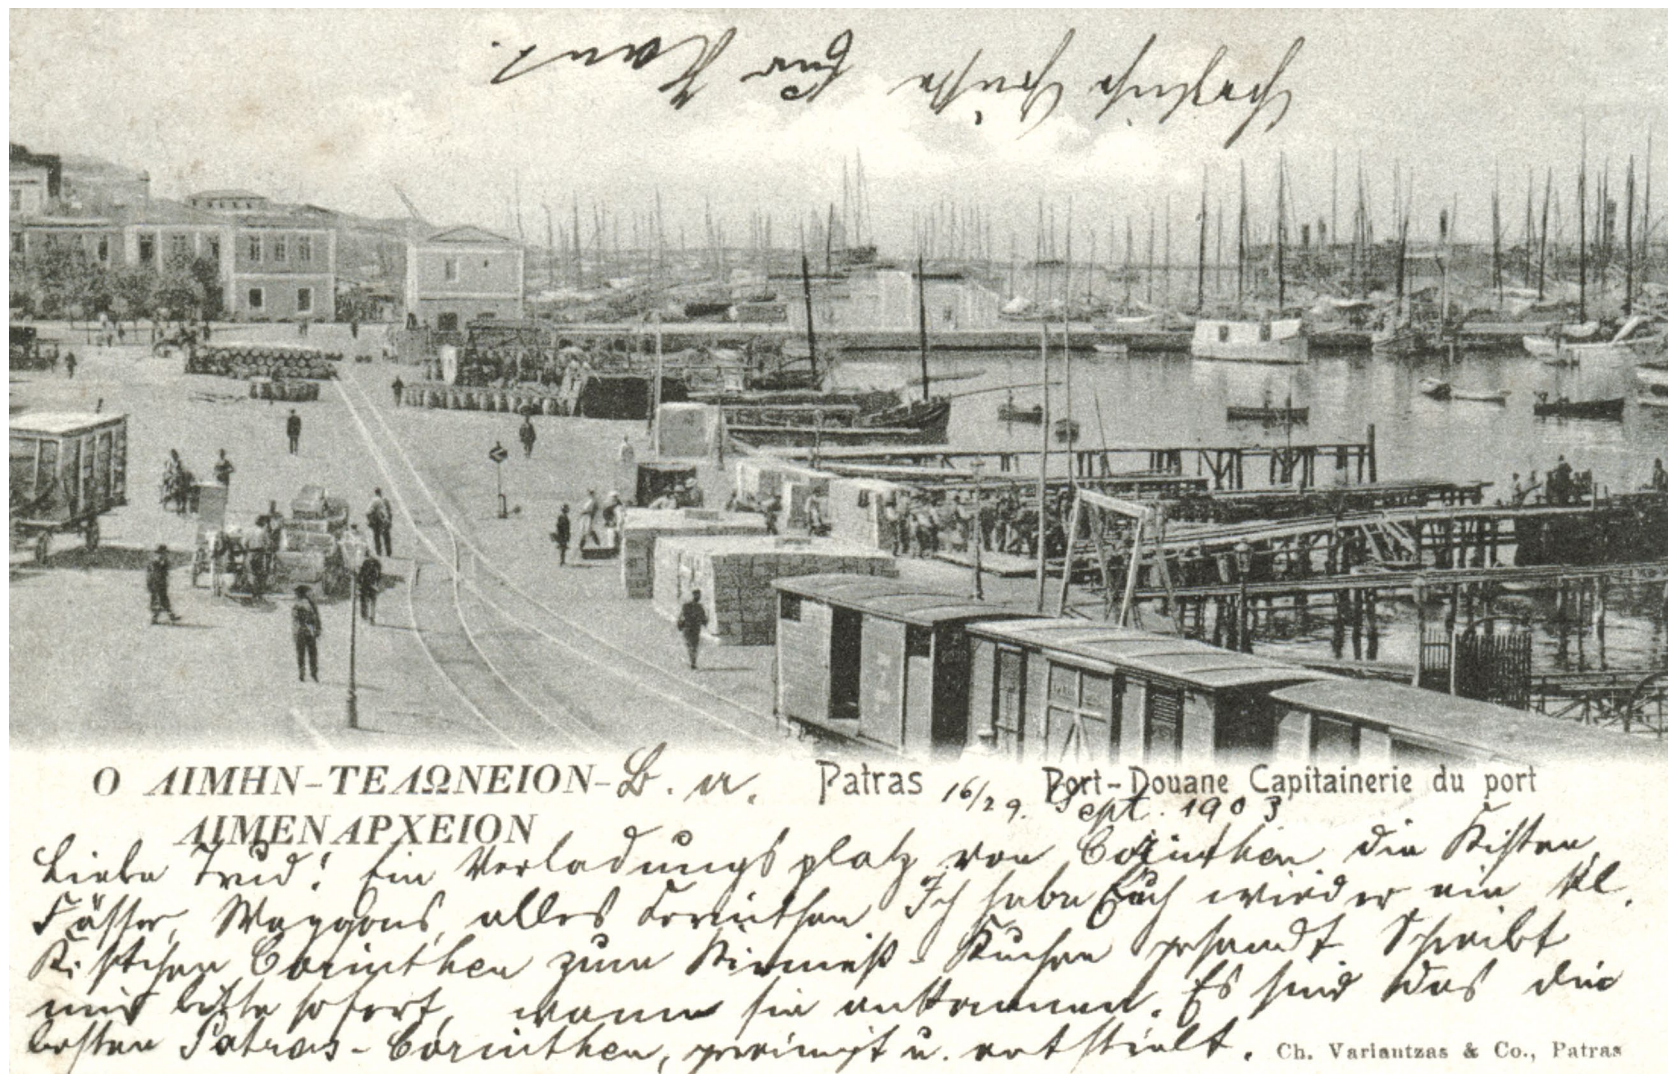 Herzliche Grüße Eur Hans.
Ο ΛΙΜΗΝ-ΤΕΛΩΝΕΙΟΝ-
ΛΙΜΕΝΑΡΧΕΙΟΝ
Patras Port-Douane Capitainerie du port
16/29. Sept. 1903
Liebe Trud! Ein Verladungsplatz von Corinthen, die Kisten,
Fässer, Waggons, alles Corinthen. Ich habe Euch wieder ein kl.
Kistchen Corinthen zum Kirmeß-Kuchen gesandt. Schreibt
mir bitte sofort, wann sie ankommen. Es sind das die
besten Patras-Corinthen, gereinigt u. entstielt.
Ch. Variantzas & Co., Patras